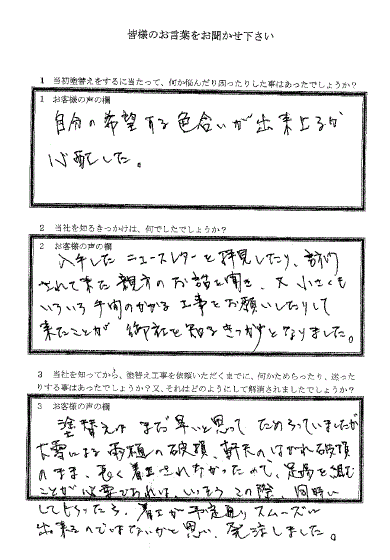 皆様のお言葉をお聞かせ下さい
1 当初塗替えをするに当たって、何か悩んだり困ったりした事はあったでしょうか?
1 お客様の声の欄
自分の希望する色合いが出来上るか
心配した。
2 当社を知るきっかけは、何でしたでしょうか?
2 お客様の声の欄
入手したニュースレターを拝見したり、訪問
されて来た親方のお話を聞き、大小さくも
いろいろ手間のかかる工事をお願いしたりして
来たことが御社を知るきっかけとなりました。
3 当社を知ってから、塗替え工事を依頼いただくまでに、何かためらったり、迷った
りする事はあったでしょうか?又、それはどのようにして解消されましたでしょうか?
3 お客様の声の欄
塗替えはまだ早いと思ってためらっていましたが
大雪による雨樋の破損、軒天のはがれ破損
のまま、長く着工されなかったので、足場を組む
ことが必要であれば、いっそう この際、同時に
してもらったら、着工が予定通りスムーズに
出来るのではないかと思い、発注しました。